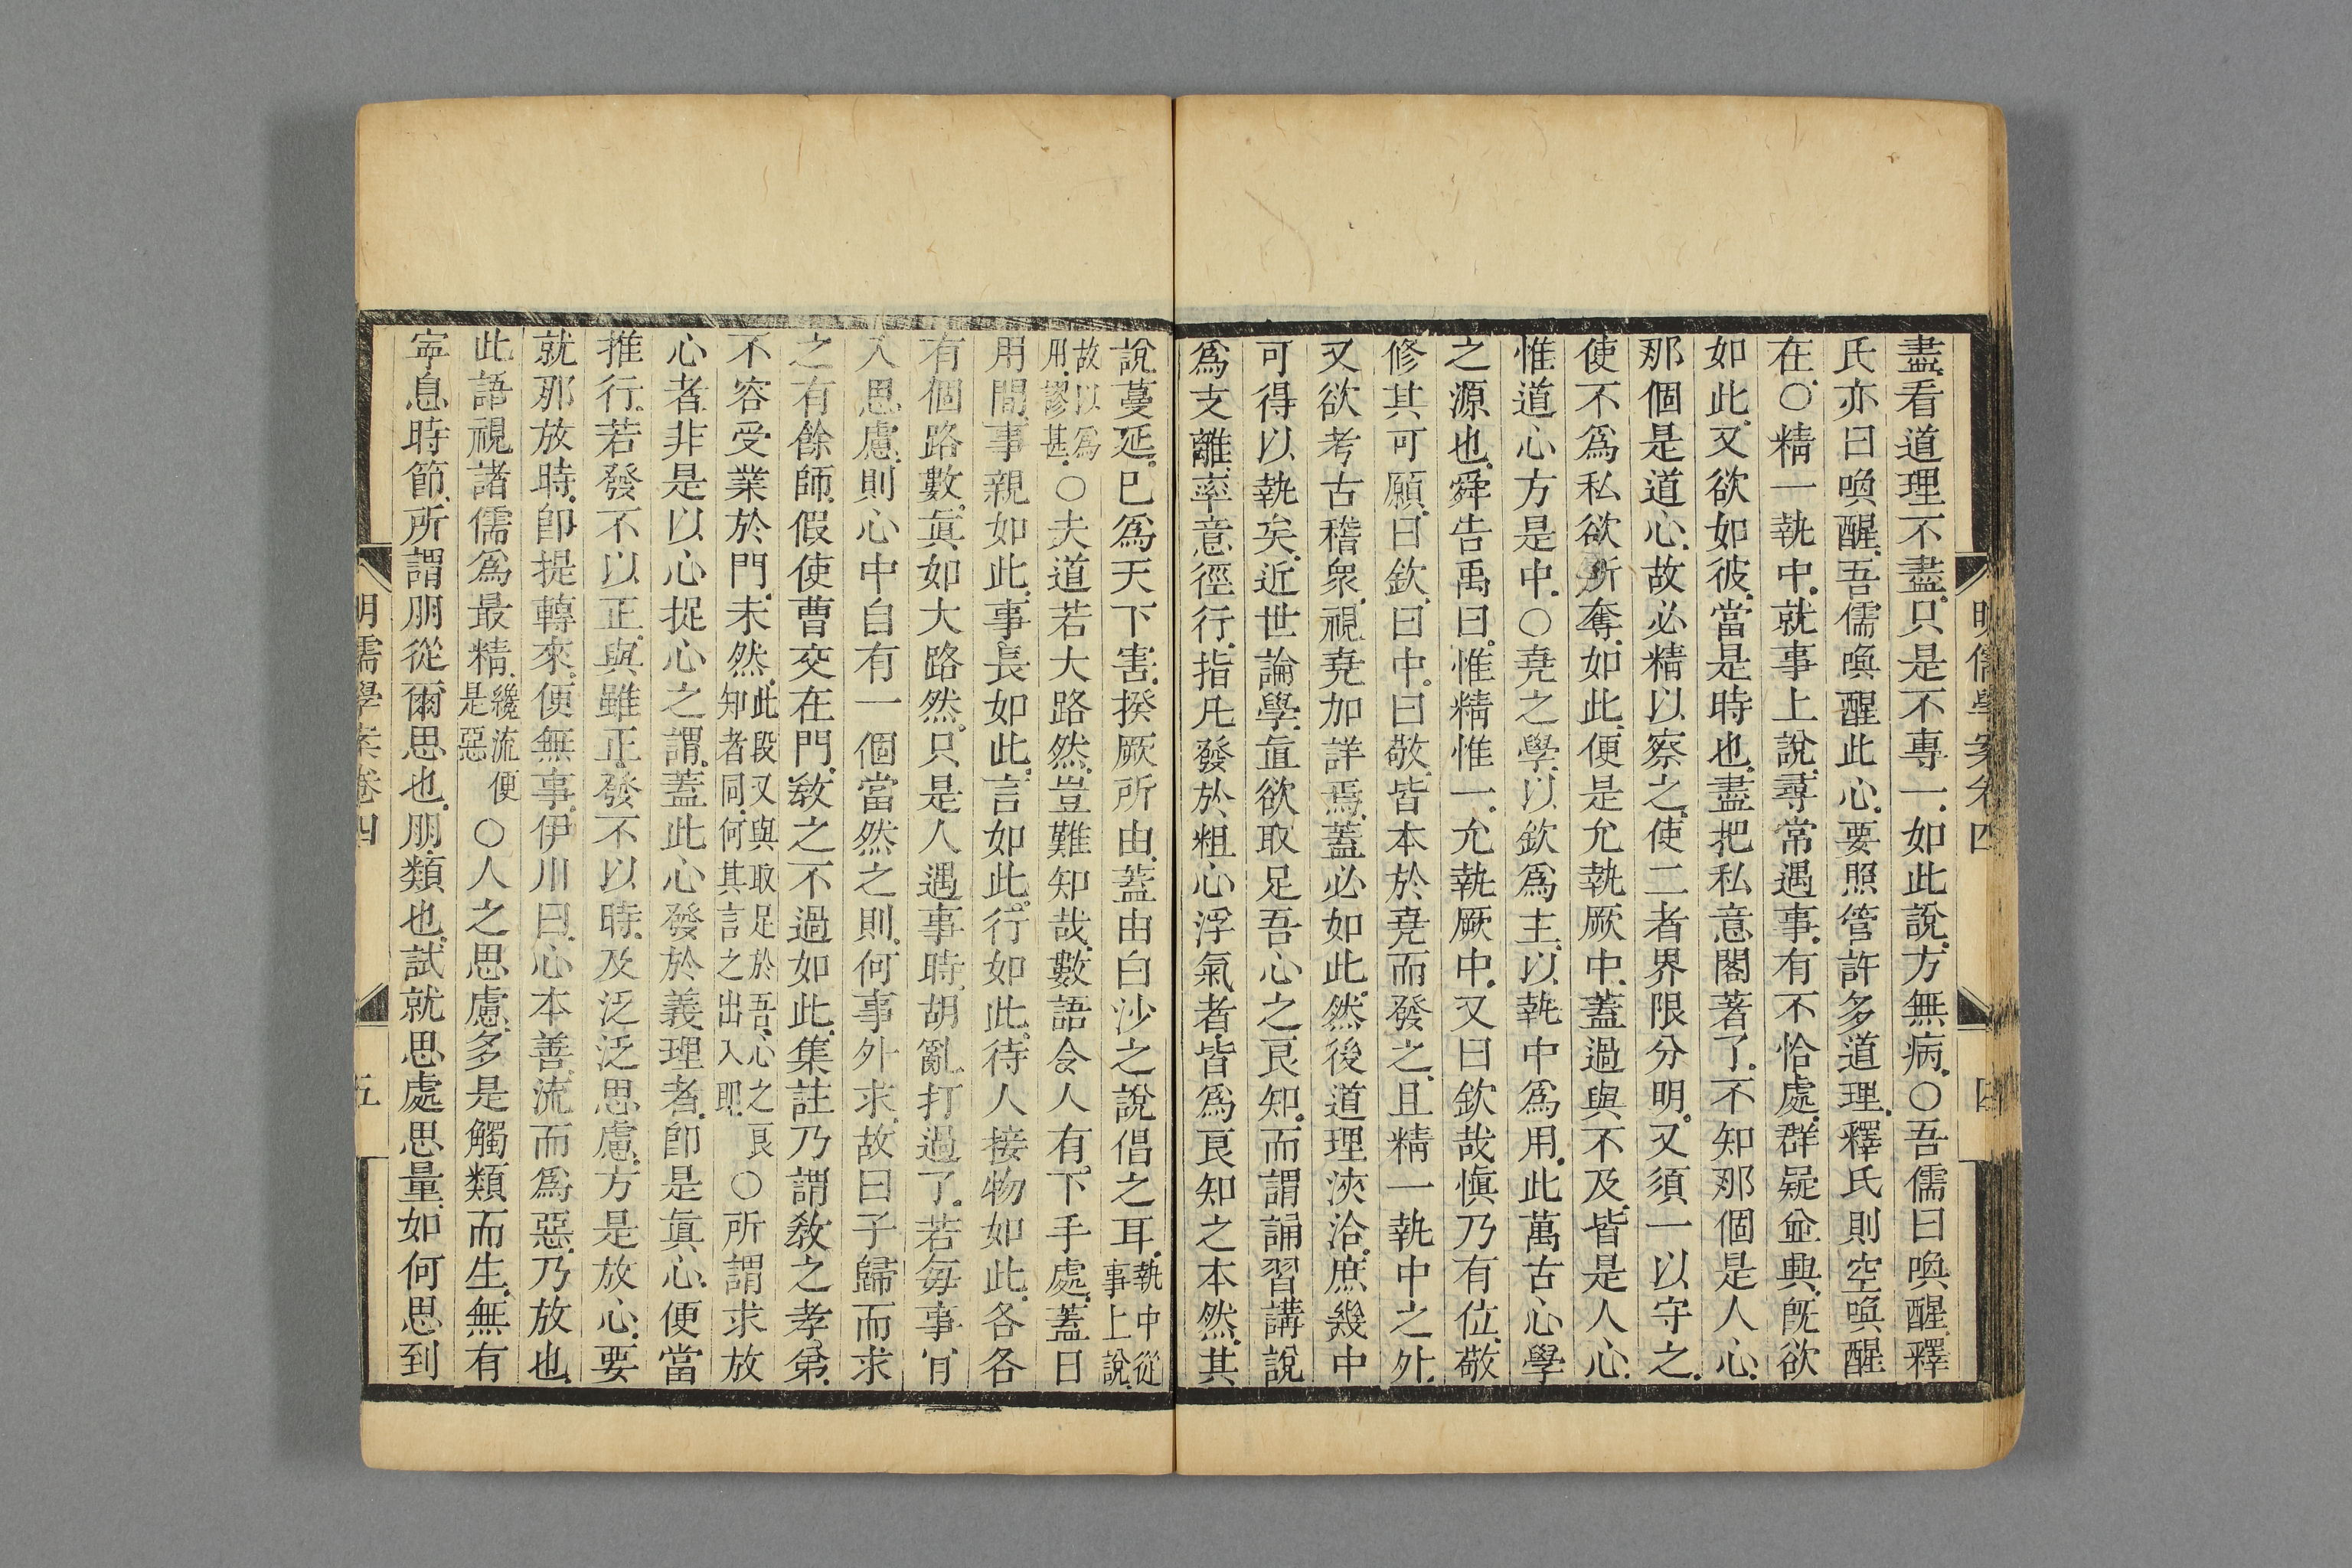 明儒學案卷四
四
盡、看道理不盡、只是不專一、如此說、方無病、○吾儒曰喚醒、釋
氏亦曰喚醒、吾儒喚醒此心、要照管許多道理、釋氏則空喚醒
在、○精一執中、就事上說、尋常遇事、有不恰處、群疑並興、旣欲
如此、又欲如彼、當是時也、盡把私意閣著了、不知那個是人心、
那個是道心、故必精以察之、使二者界限分明、又須一以守之、
使不爲私欲所奪、如此、便是允執厥中、蓋過與不及、皆是人心、
惟道心方是中、○堯之學、以欽爲主、以執中爲用、此萬古心學
之源也、舜告禹曰、惟精惟一、允執厥中、又曰欽哉愼乃有位、敬
修其可願、曰欽、曰中、曰敬、皆本於堯而發之、且精一執中之外、
又欲考古稽衆、視堯加詳焉、蓋必如此、然後道理浹洽、庶幾中
可得以執矣、近世論學、直欲取足吾心之良知、而謂誦習講說
爲支離、率意徑行、指凡發於粗心浮氣者皆爲良知之本然、其
說蔓延、已爲天下害、揆厥所由、蓋由白沙之說倡之耳、執中從事上說、
故以爲用、謬甚、○夫道若大路然、豈難知哉、數語令人有下手處、蓋日
用間、事親如此、事長如此、言如此、行如此、待人接物如此、各各
有個路數、眞如大路然、只是人遇事時、胡亂打過了、若每事肯
入思慮、則心中自有一個當然之則、何事外求、故曰子歸而求
之有餘師、假使曹交在門、敎之不過如此、集註乃謂敎之孝弟、
不容受業於門、未然、此段又與取足於吾心之良知者同、何其言之出入耶、○所謂求放
心者、非是以心捉心之謂、蓋此心發於義理者、卽是眞心、便當
推行、若發不以正、與雖正、發不以時、及泛泛思慮、方是放心、要
就那放時、卽提轉來、便無事、伊川曰、心本善、流而爲惡、乃放也、
此語視諸儒爲最精、纔流便是惡○人之思慮、多是觸類而生、無有
寧息時節、所謂朋從爾思也、朋、類也、試就思處思量、如何思到
明儒學案卷四
五